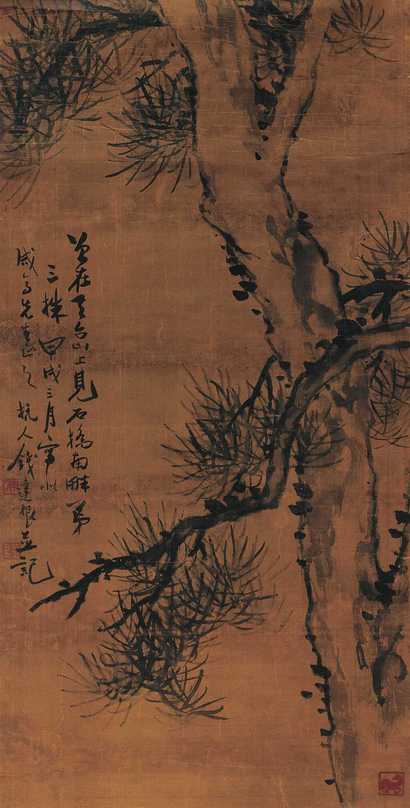 曾在天台山上見石橋南畔第
三株甲戌三月寫似
咸高先生正之杭人錢達根並記